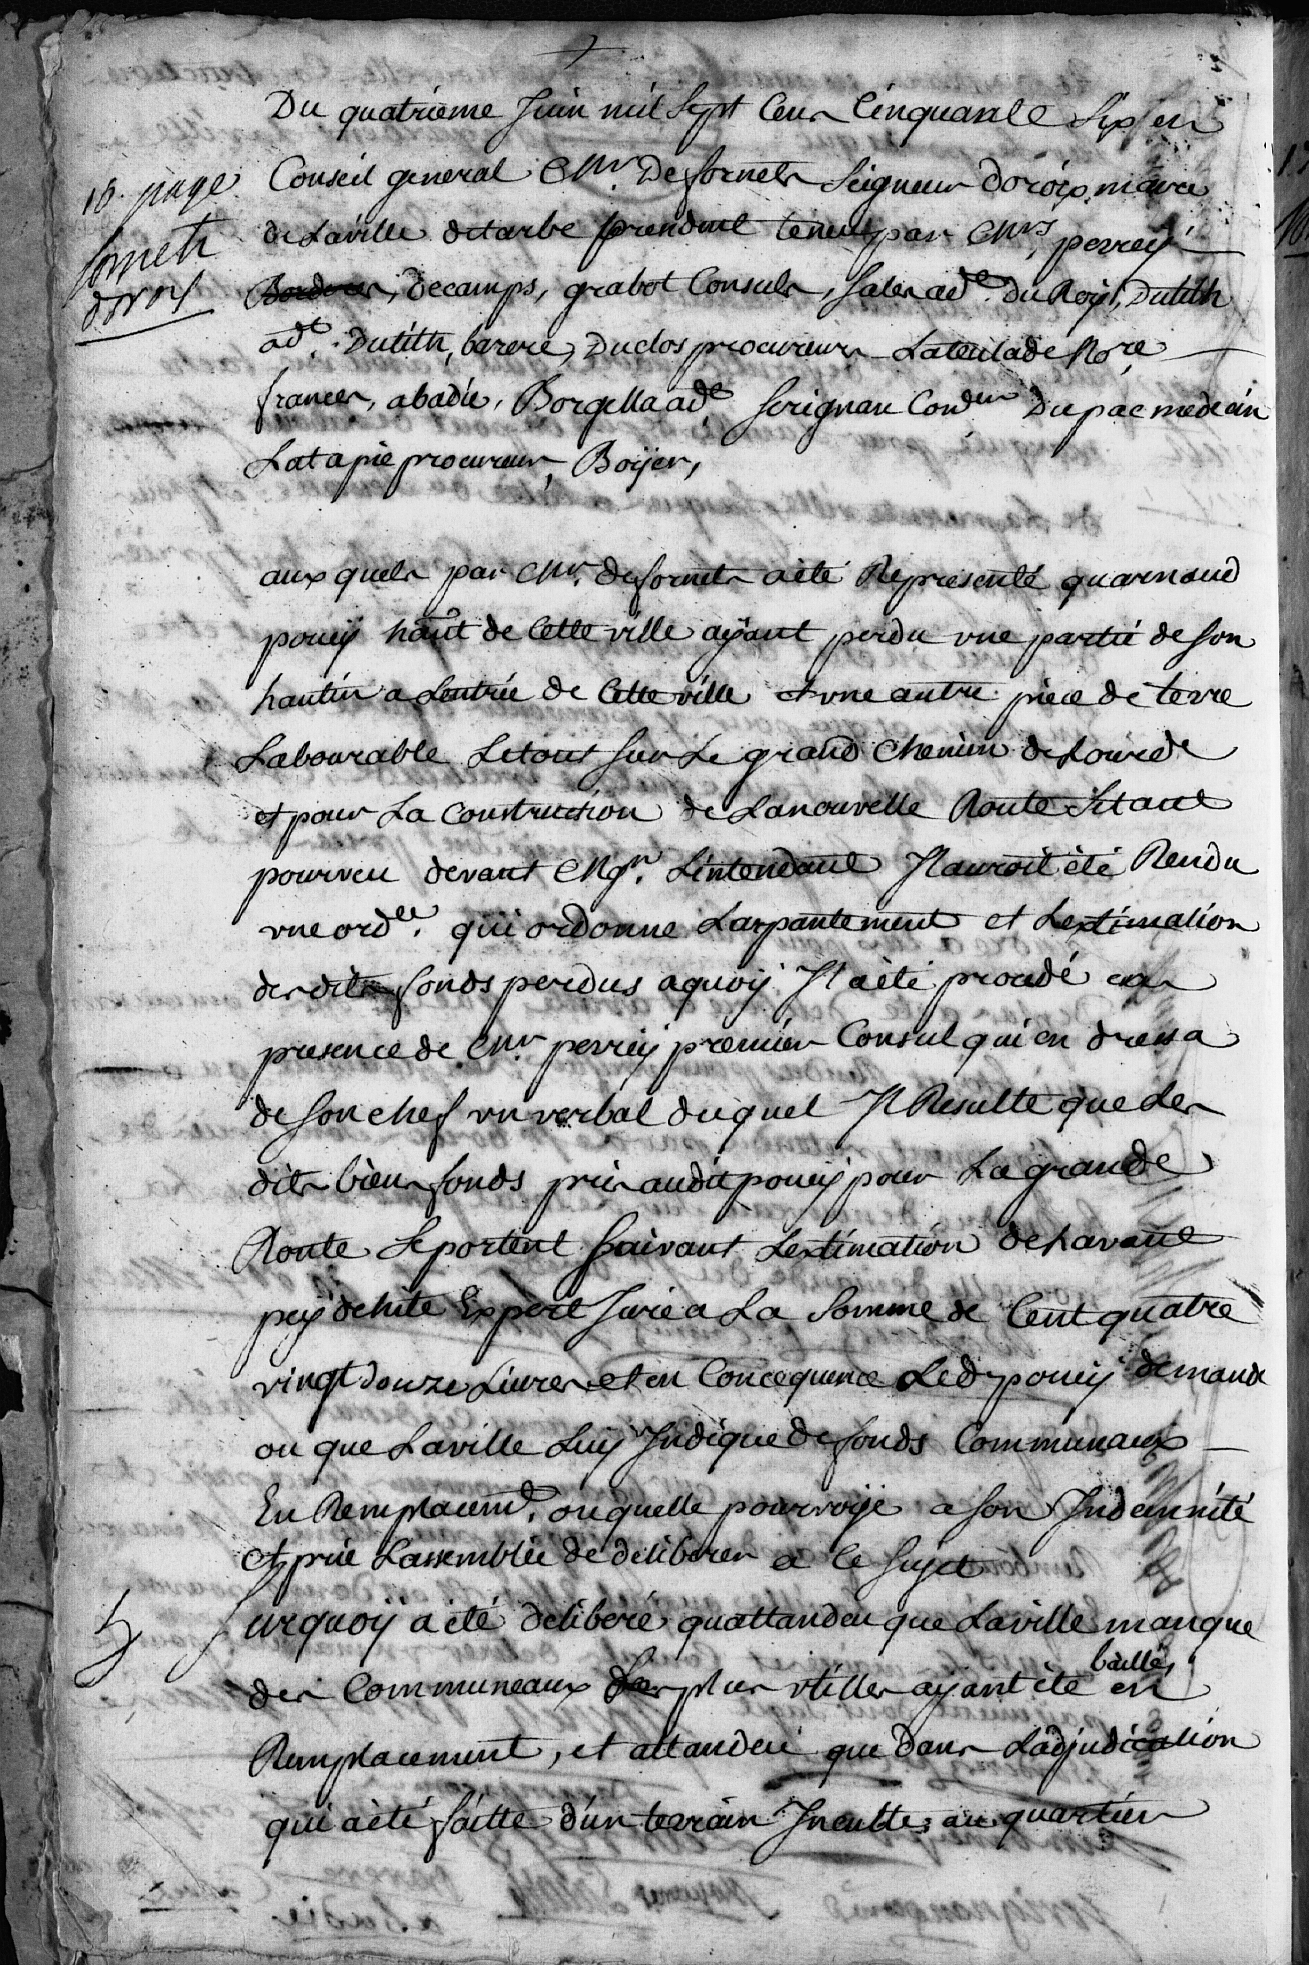 Du quatrieme Juin mil Sept Cens Cinquante Six en
Conseil general Mr. De fornets Seigneur doroix maire
de Laville de tarbe president tenent par Mrs. perrey
decamps, grabot Consuls, Sales adt. du Roy, Dutilh
adt. Dutilh, barere, Duclos procureurs Lateulade Nore.
frances, abadie, Borgella adt. Serignan Conder Dupac medecin
Latapie procureur, Boyer,
10. page
fornets
doroix
aux quels par Mr. defornets a été Representé quarnaud
pouey hant de Cette ville ayant perdu vne partie de son
hautin a Lentrée de Cette ville et vne autre piece de terre
Labourable Letout sur Le grand chemin de Lourde
et pour La Construction de Lanouvelle Route Setant
pourveu devant Mgr. Lintendant Jl auroit été Rendu
vne ordce. qui ordonne Larpantement et Lextimation
des dits fonds perdus a quoy Jl a été procedé en
presence de Mr. perrey premier Consul qui en dressa
de son chef vn verbal duquel Jl Resulte que Les
dits biens fonds pris audit pouey pour La grande
Route Se portent Suivant Lextimation de havane
pey dehite Expert Juré a La Somme de Cent quatre
vingt douze Livres et en Concequence Led. pouey demande
ou que Laville Luy Jndique de fonds Communaux
En Remplacemt. ou quelle pourvoye a son Jndemnité
et prie Lassemblée de deliberer a Ce Sujet
Surquoy a été deliberé quattandeu que Laville manque
des Communeaux les plus vtilles ayant été baillés en
Remplacement, et attandeu que dans Ladjudication
qui a été faitte d'un terrain Jnculte au quartier